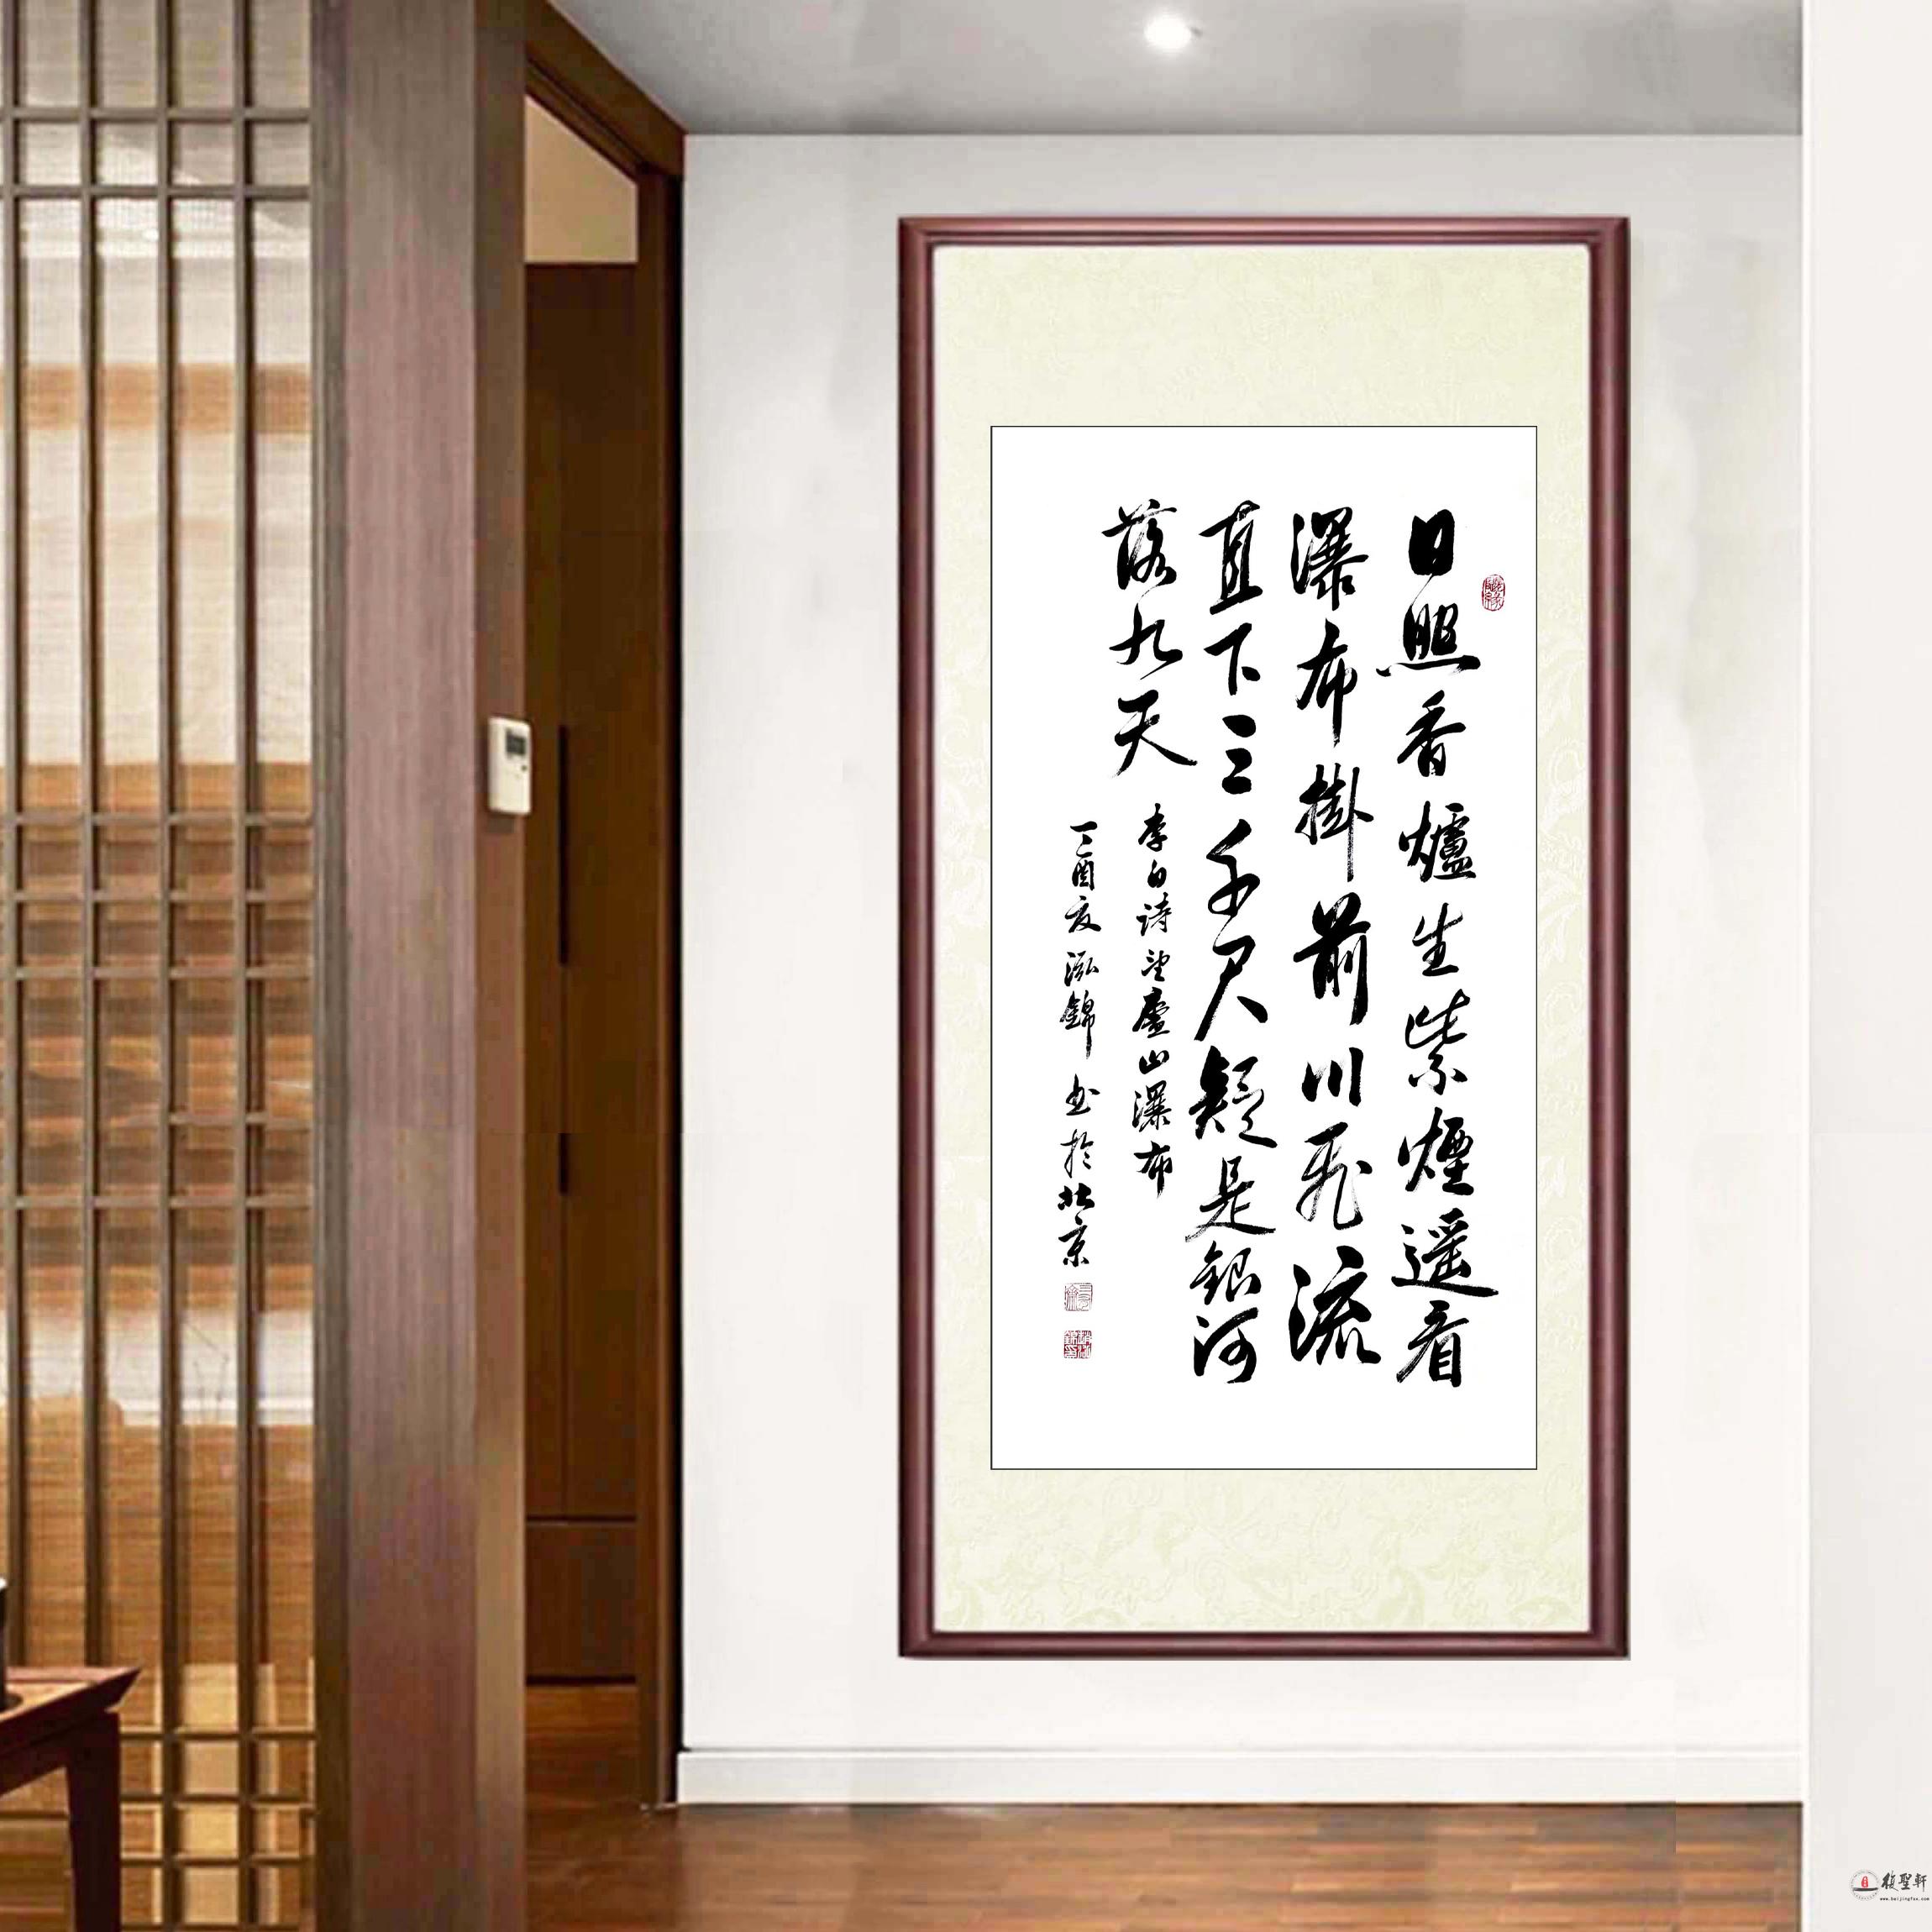 日照香爐生紫煙遥看
瀑布掛前川飛流
直下三千尺疑是銀河
落九天
李白诗望廬山瀑布
丁酉夏泓錦书於北京
複聖軒
www.beijingfsx.com